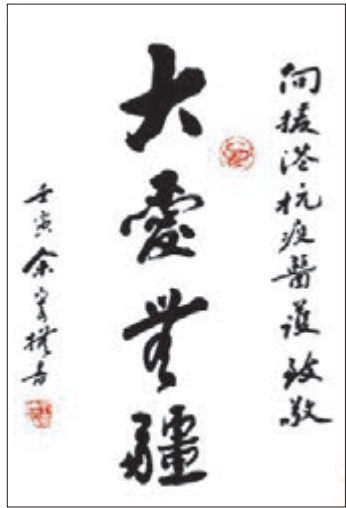 向援港抗疫醫護致敬
大愛無疆
壬寅余寳撰書